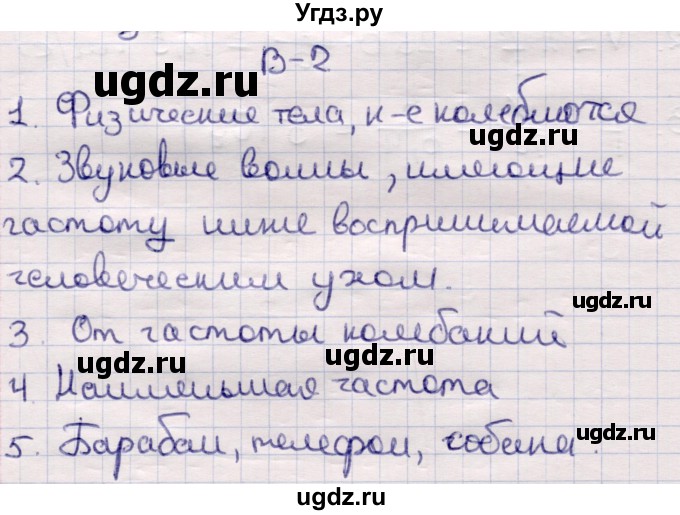 Угдз.ру
В-2
ugdz.ru
1. Физические тела, к-е колеблются
ugdz.ru
2. Звуковые волны, имеющие
частоту ниже воспринимаемой
человеческим ухом.
ugdz.ru
3. От частоты колебаний
ugdz.ru
ugdz.ru
4 Наименьшая частота
5. Барабан, телефон, собака.
ugdz.ru
ugdz.ru
ugdz.ru